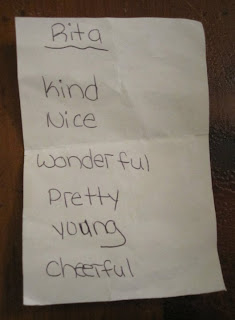 Rita
Kind
Nice
Wonderful
Pretty
young
Cheerful